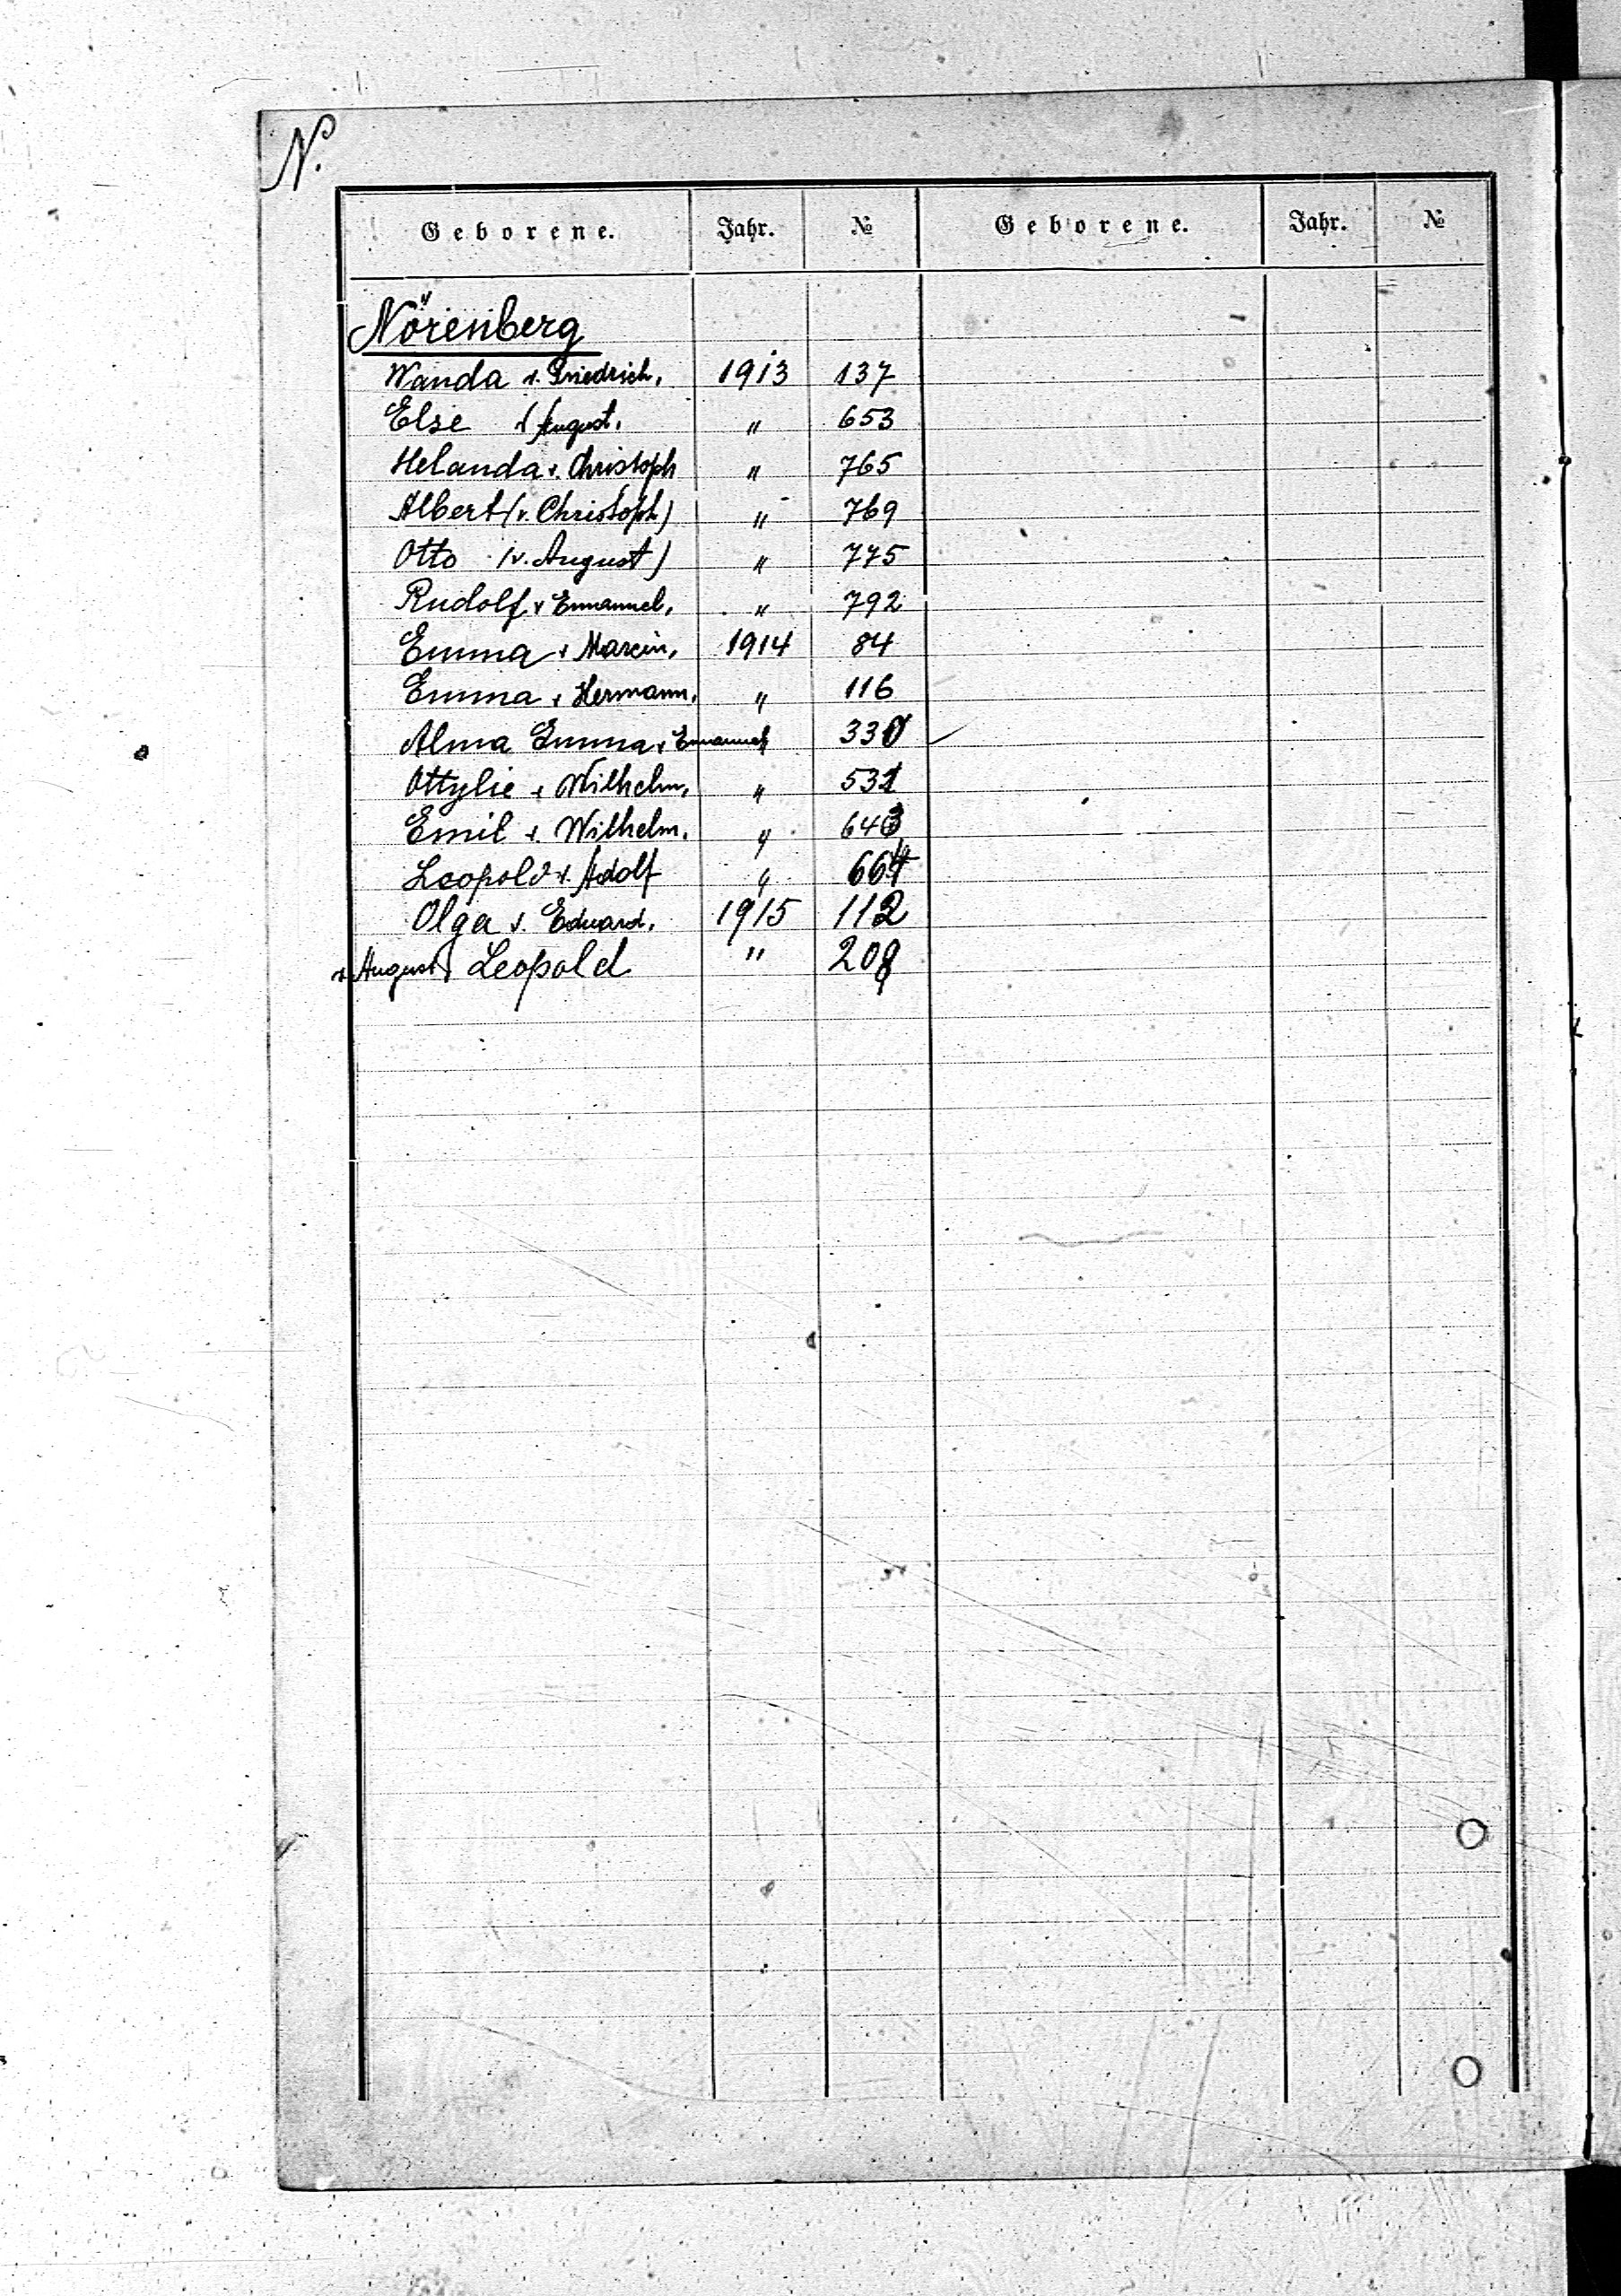 N.
Geborene. Jahr. № Geborene. Jahr. №
Nörenberg
Wanda v. Friedrich. 1913 137
Else v. August. " 653
Helanda v. Christoph " 765
Albert (v. Christoph) " 769
Otto (v. August) " 775
Rudolf v Emanuel. " 792
Emma v Marcin. 1914 84
Emma v Hermann. " 116
Alma Emma v Emanuel 330
Ottylie v Wilhelm. "
Emil v. Wilhelm. " 643
Leopold v. Adolf " 664
Olga v. Eduard. 1915 112
v. August Leopold "